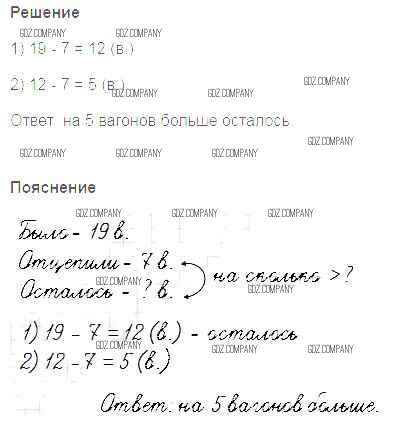 Решение
GDZ.COMPANY GDZ.COMPANY
1) 19 - 7 = 12 (в.)
GDZ.COMPANY
2) 12 - 7 = 5 (в.)
GDZ.COMPANY GDZ.COMPANY
Ответ: на 5 вагонов больше осталось.
GDZ.COMPANY
GDZ.COMPANY GDZ.COMPANY GDZ.COMPANY
Пояснение
GDZ.COMPANY GDZ.COMPANY GDZ.COMPANY
Было - 19 в.
Отцепили - 7 в.
на сколько > ?
GDZ.COMPANY GDZ.COMPANY
Осталось - ? в.
1) 19 - 7 = 12 (в.) - осталось
GDZ.COMPANY GDZ.COMPANY GDZ.COMPANY
2) 12 - 7 = 5 (в.)
Ответ: на 5 вагонов больше.